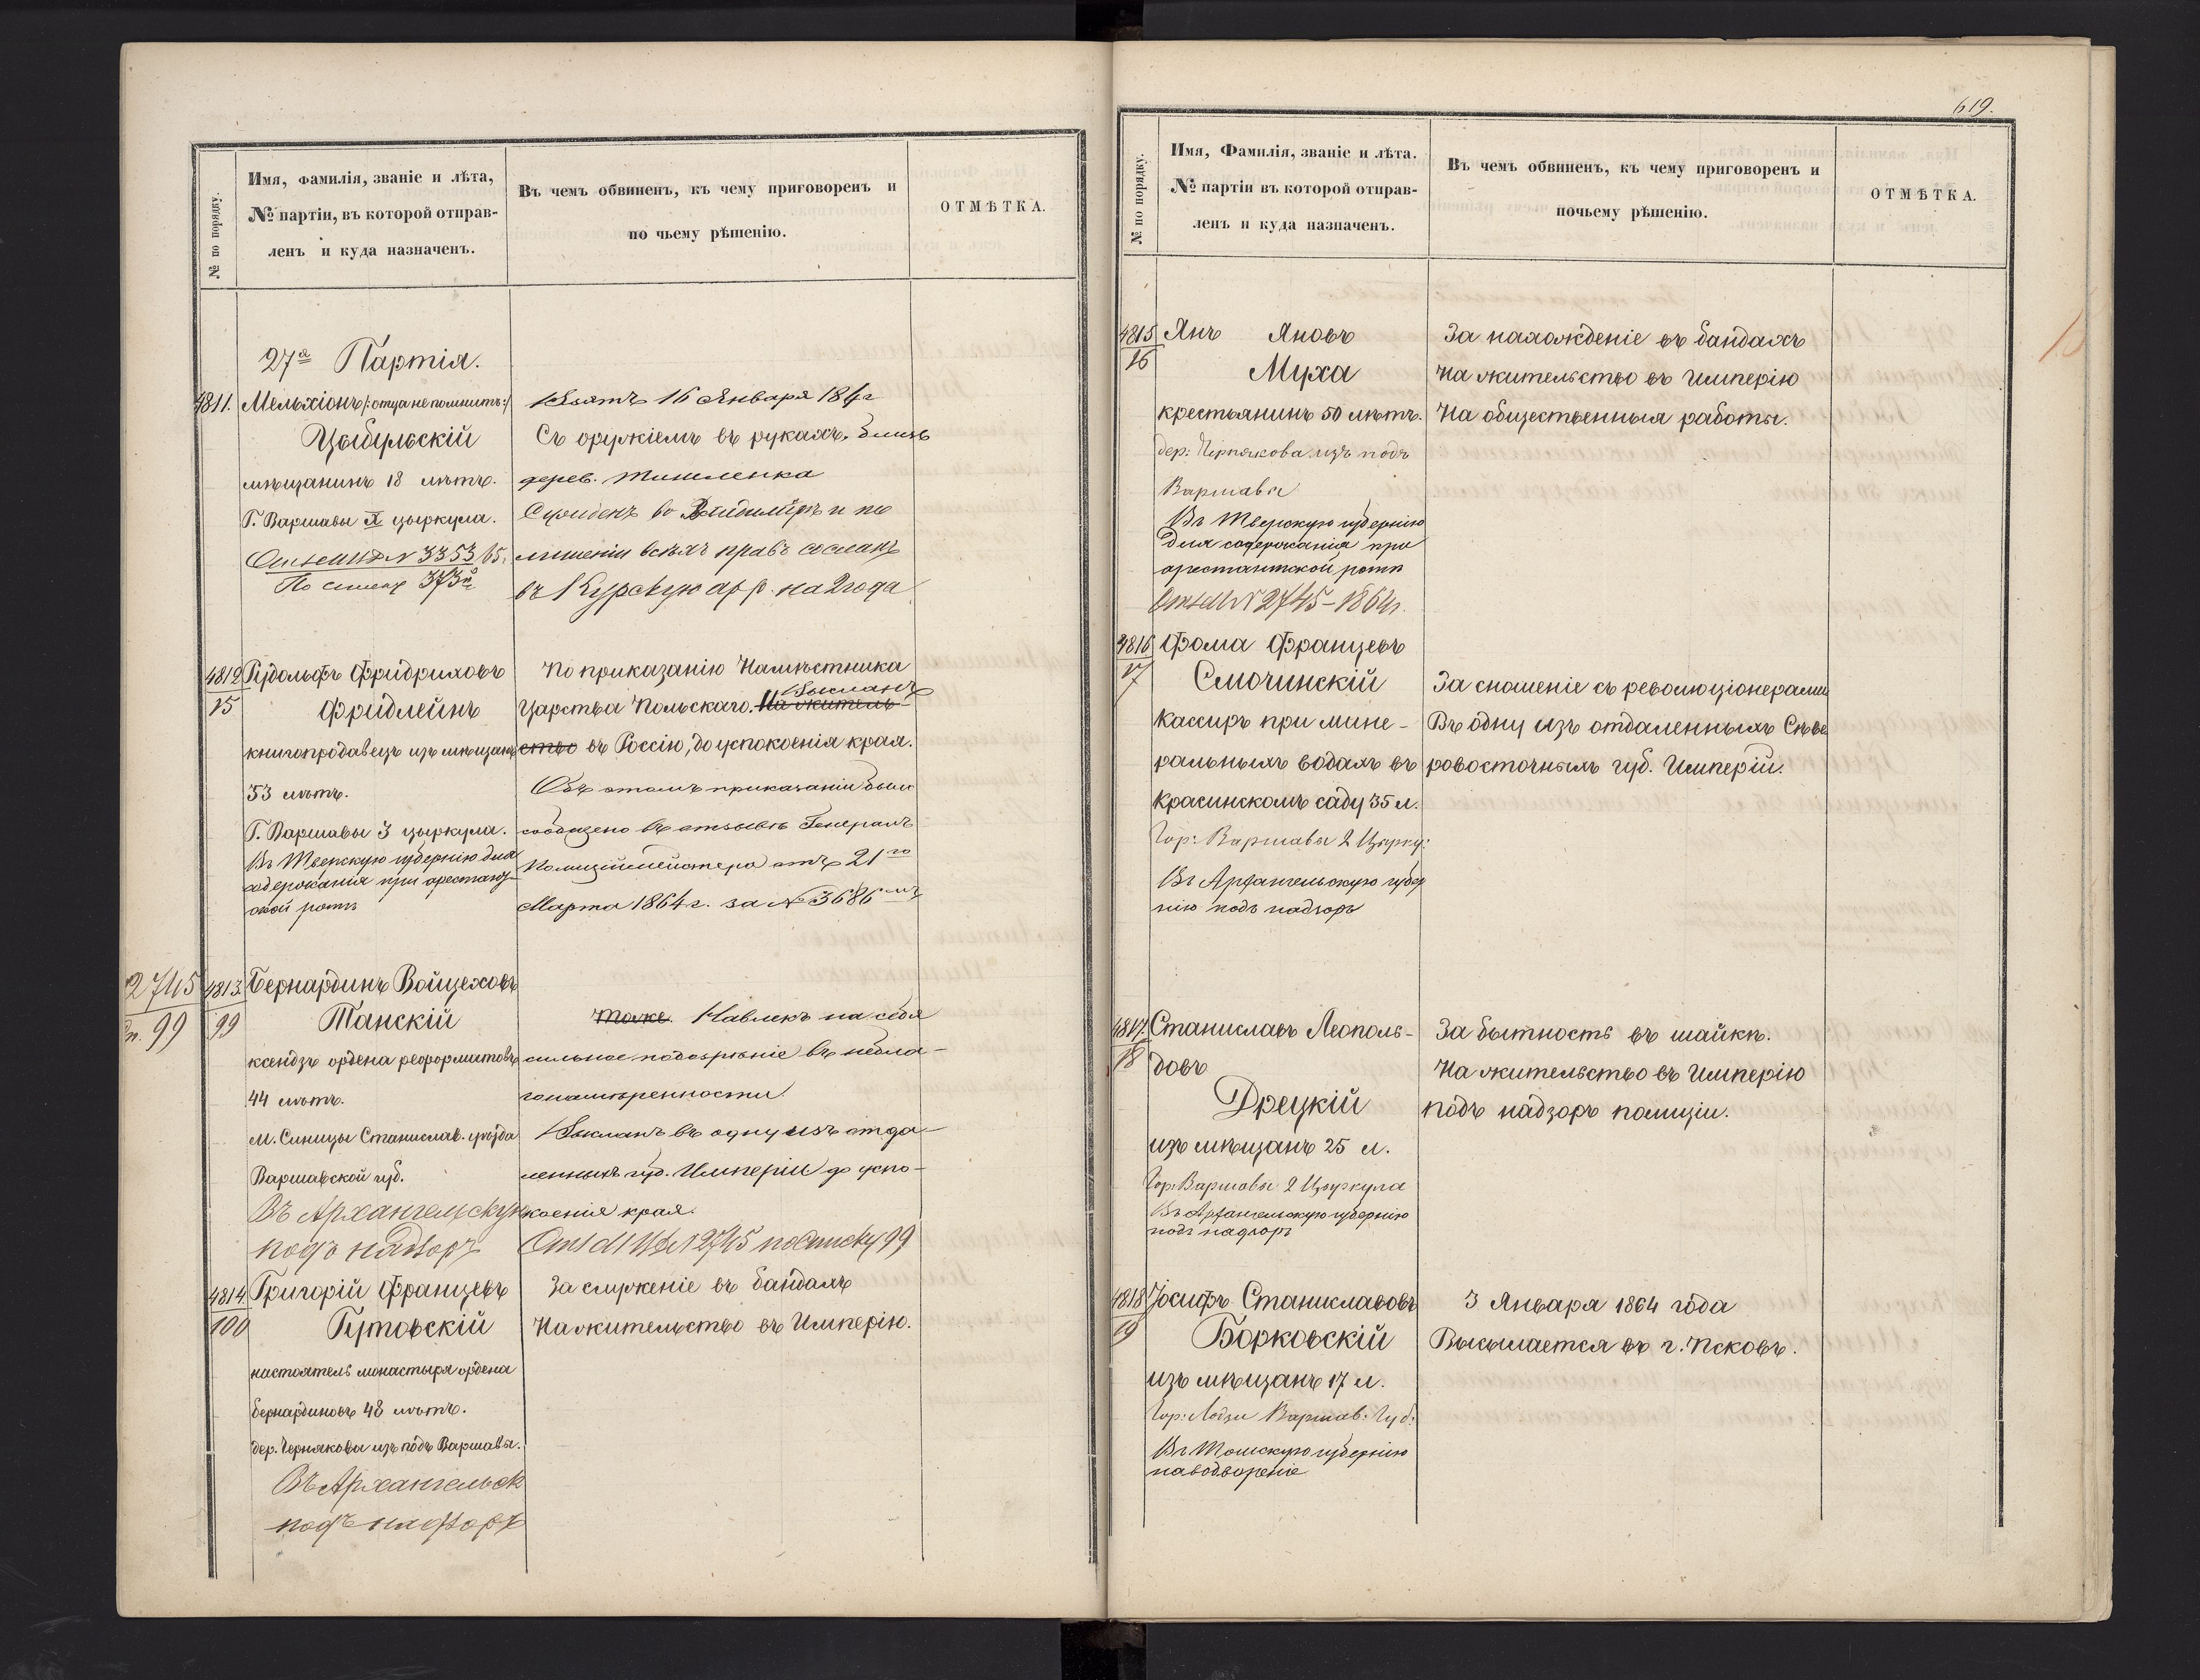 № по порядку.
Имя, фамилія, званіе и лѣта,
№ партіи, въ которой отправ-
ленъ и куда назначенъ.
Въ чемъ обвиненъ, къ чему приговоренъ и
по чьему рѣшенію.
ОТМѢТКА.
27я Партія.
4811.
Мельхіонъ /:отца не помнитъ:/
Цыбульскій
мѣщанинъ 18 лѣтъ.
Г. Варшавы X цыркула.
N 3353/65.
373
Взятъ 16 Января 184г
Съ оружіемъ въ рукахъ, близь
дерев.
Сужденъ во и по
лишеніи всѣхъ правъ сосланъ
въ Курскую ар р. на 2 года
4812
15
Рудольфъ Фридриховъ
Фридлейнъ
книгопродавецъ изъ мѣщанъ
53 лѣтъ.
Г. Варшавы 3 цыркула.
Въ Тверскую губернію для
содержанія при арестант-
ской ротѣ
По приказанію Намѣстника
Высланъ
Царства Польскаго. На житель-
ство въ Россію, до успокоенія края.
Объ этомъ приказаніи было
сообщено въ отзывѣ Генералъ
Полиціймейстера отъ 21го
Марта 1864 г. за № 3686мъ
2745
п. 99
4813.
99
Бернардинъ Войцеховъ
Танскій
ксендзъ ордена реформатовъ
44 лѣтъ.
м. Синицы Станислав. уѣзда
Варшавской губ.
Въ Архангельскую
подъ надзоръ
Тоже. Навлекъ на себя
сильное подозрѣніе въ небла-
гонамѣренности.
Высланъ въ одну изъ отда-
ленныхъ губ. Имперіи до успо-
коенія края.
2745 по списку 99
4814.
100
Григорій Францевъ
Гутовскій
настоятель монастыря ордена
бернардиновъ 48 лѣтъ.
дер. Чернякова изъ подъ Варшавы.
Въ Архангельск
подъ надзоръ
За служеніе въ бандахъ
На жительство въ Имперію.
619.
№ по порядку.
Имя, Фамилія, званіе и лѣта.
№ партіи въ которой отправ-
ленъ и куда назначенъ.
Въ чемъ обвиненъ, къ чему приговоренъ и
почьему рѣшенію.
ОТМѢТКА.
4815
16
Янъ Яновъ
Муха
крестьянинъ 50 лѣтъ.
дер: Чернякова изъ подъ
Варшавы
Въ Тверскую губернію
для содержанія при
арестантской ротѣ
N 2745-1864г.
За нахожденіе въ бандахъ
На жительство въ Имперію
На общественныя работы.
4816
17
Фома Францевъ
Смочинскій
кассиръ при мине-
ральныхъ водахъ въ
Красинскомъ саду 35 л.
Гор: Варшавы 2 Цырку:
Въ Архангельскую губер
нію подъ надзоръ
За сношеніе съ революціонерами
Въ одну изъ отдаленныхъ Сѣве
ровосточныхъ губ. Имперіи.
4817.
18
Станиславъ Леополь-
довъ
Дрецкій
изъ мѣщанъ 25 л.
Гор: Варшавы 2 Цыркула
Въ Архангельскую губернію
подъ надзоръ
За бытность въ шайкѣ.
На жительство въ Имперію
подъ надзоръ полиціи.
4818
19
Іосифъ Станиславовъ
Борковскій
изъ мѣщанъ 17 л.
Гор: Лодзи Варшав: Губ:
Въ Томскую губернію
на водвореніе
3 Января 1864 года
Высылается въ г. Псковъ.